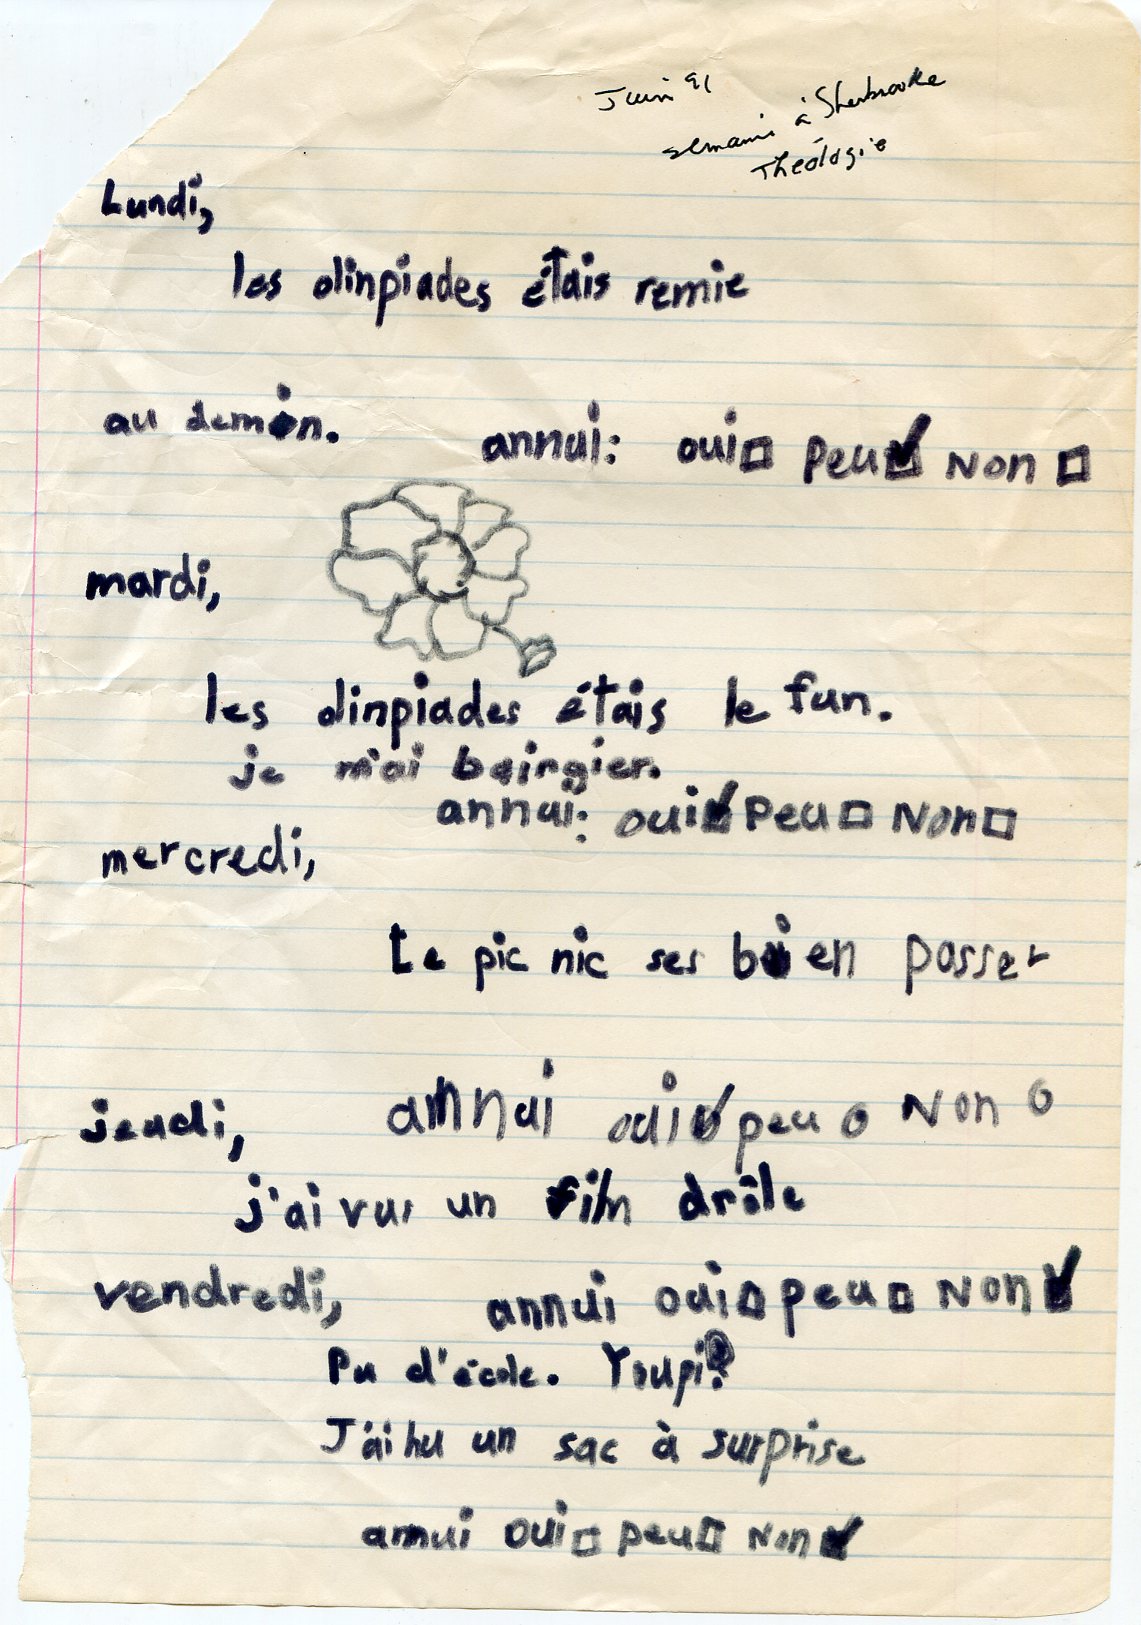 Juin 91
semaine à Sherbrooke
Théologie
Lundi,
les olinpiades étais remie
au demin.
annui: oui☐ peu☑ Non☐
mardi,
les olinpiades étais le fun.
je m'ai bairgier.
annui: oui☑ Peu☐ Non☐
mercredi,
Le pic nic ses bien passer
jeudi,
annui oui☑ peu☐ Non☐
j'ai vus un film drôle
vendredi,
annui oui☐ peu☐ Non☑
Pu d'école. Youpi!
J'ai hu un sac à surprise
annui oui☐ peu☐ Non☑